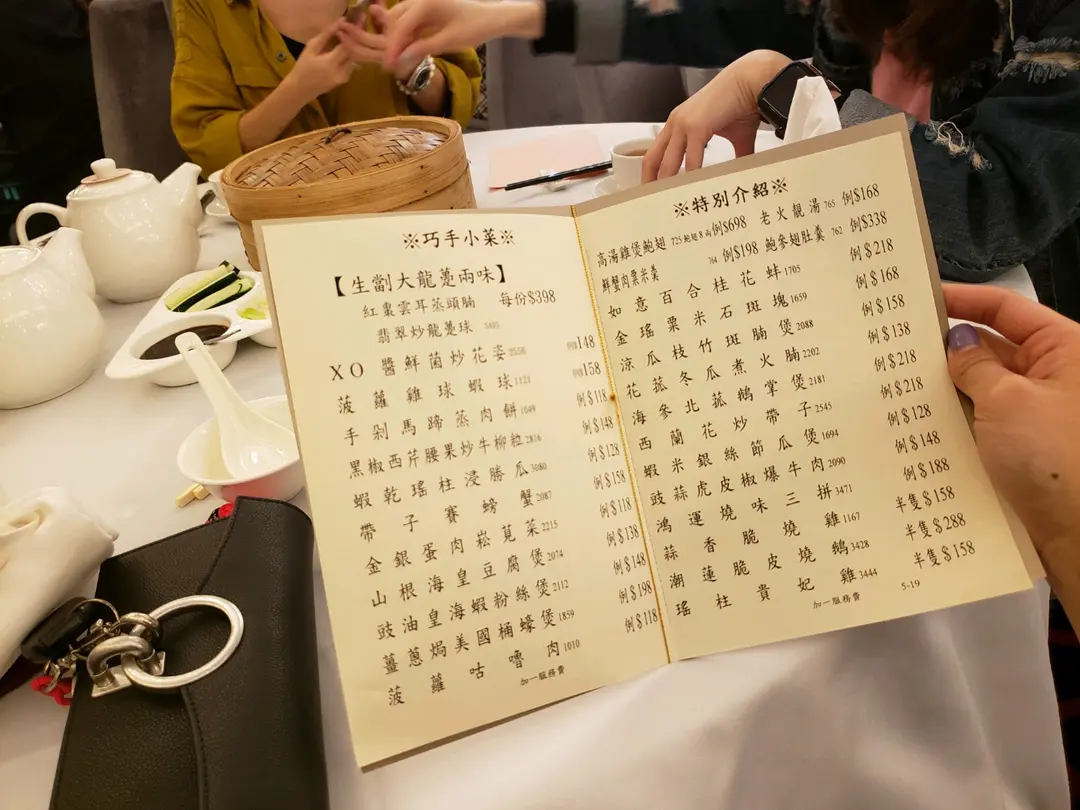 ※巧手小菜※
【生劏大龍躉兩味】
紅棗雲耳蒸頭腩 每份$398
翡翠炒龍躉球
XO醬鮮菌炒花姿2558 例$148
菠蘿雞球蝦球1121 例$158
手剁馬蹄蒸肉餅1049 例$118
黑椒西芹腰果炒牛柳粒2816 例$148
蝦乾瑤柱浸勝瓜3080 例$128
帶子賽螃蟹2087 例$158
金銀蛋肉崧莧菜2215 例$118
山根海皇豆腐煲2074 例$138
豉油皇海蝦粉絲煲2112 例$148
薑蔥焗美國桶蠔煲1859 例$198
菠蘿咕嚕肉1010 例$118
加一服務費
※特別介紹※
高湯雞煲鮑翅 725 鮑翅8両 例$698 老火靚湯 765 例$168
鮮蟹肉粟米羹 764 例$198 鮑參翅肚羹 762 例$338
如意百合桂花蚌1705 例$218
金瑤粟米石斑塊1659 例$168
涼瓜枝竹斑腩煲2088 例$158
花菇冬瓜煮火腩2202 例$138
海參北菇鵝掌煲2181 例$218
西蘭花炒帶子2545 例$218
蝦米銀絲節瓜煲1694 例$128
豉蒜虎皮椒爆牛肉2090 例$148
鴻運燒味三拼3471 例$188
蒜香脆燒雞1167 半隻$158
潮蓮脆皮燒鵝3428 半隻$288
瑤柱貴妃雞3444 半隻$158
加一服務費 5-19